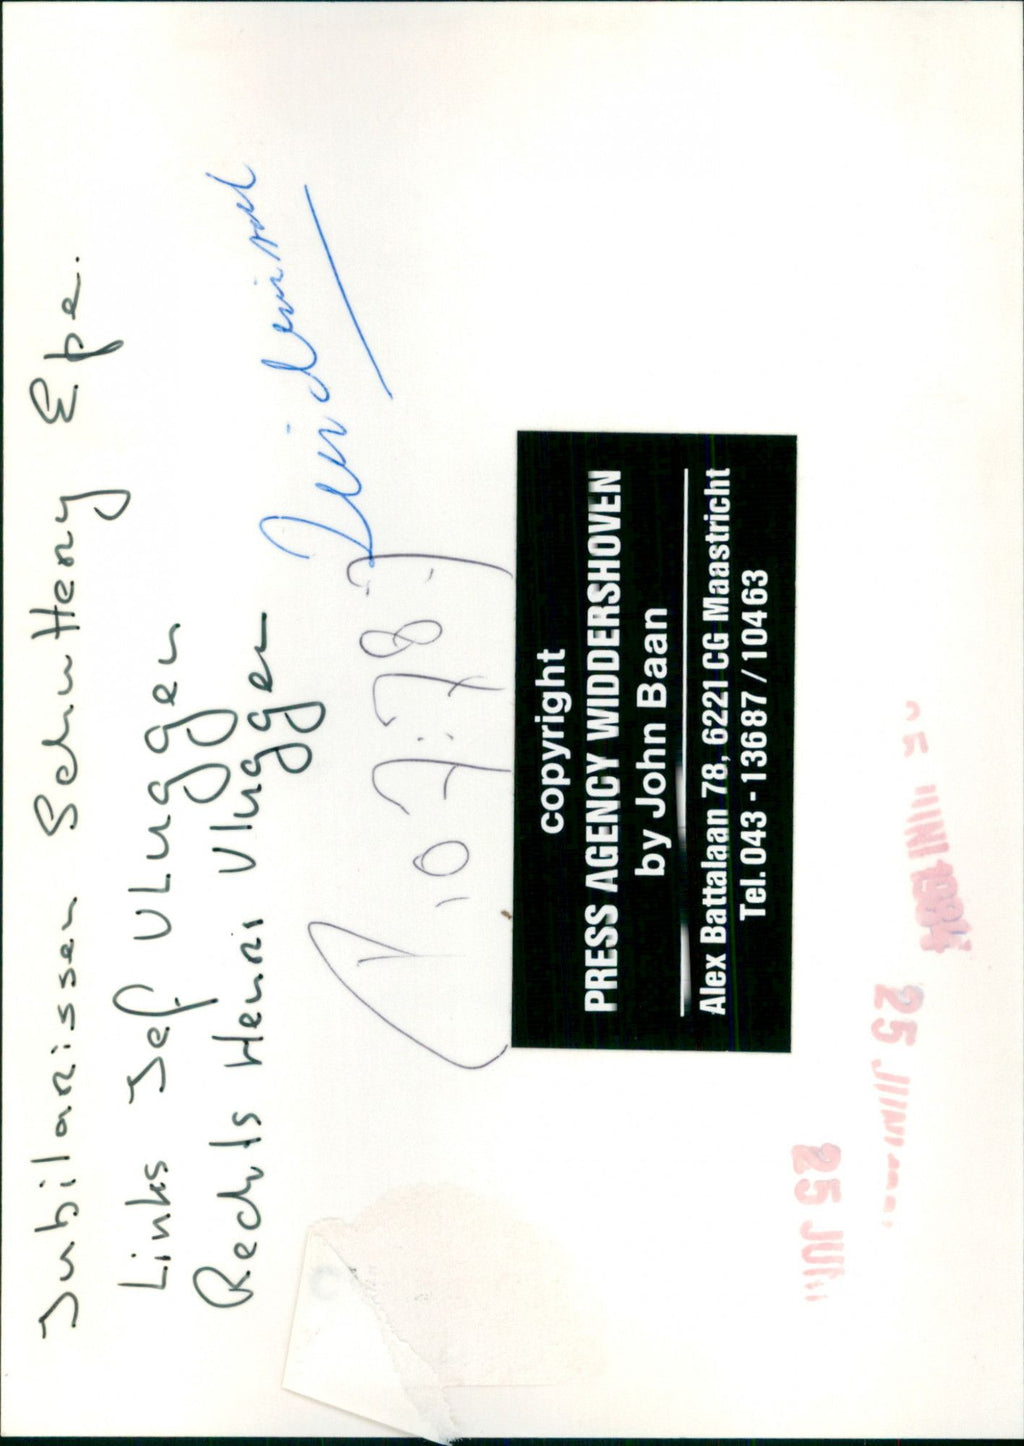 Jubilarissen Schutterij Epe.
Links Jef Vluggen
Rechts Henri Vluggen
Zuid
copyright
PRESS AGENCY WIDDERSHOVEN
by John Baan
Alex Battalaan 78, 6221 CG Maastricht
Tel. 043 - 13687 / 10463
25 JUNI 1994
25 JUNI
25 JUNI